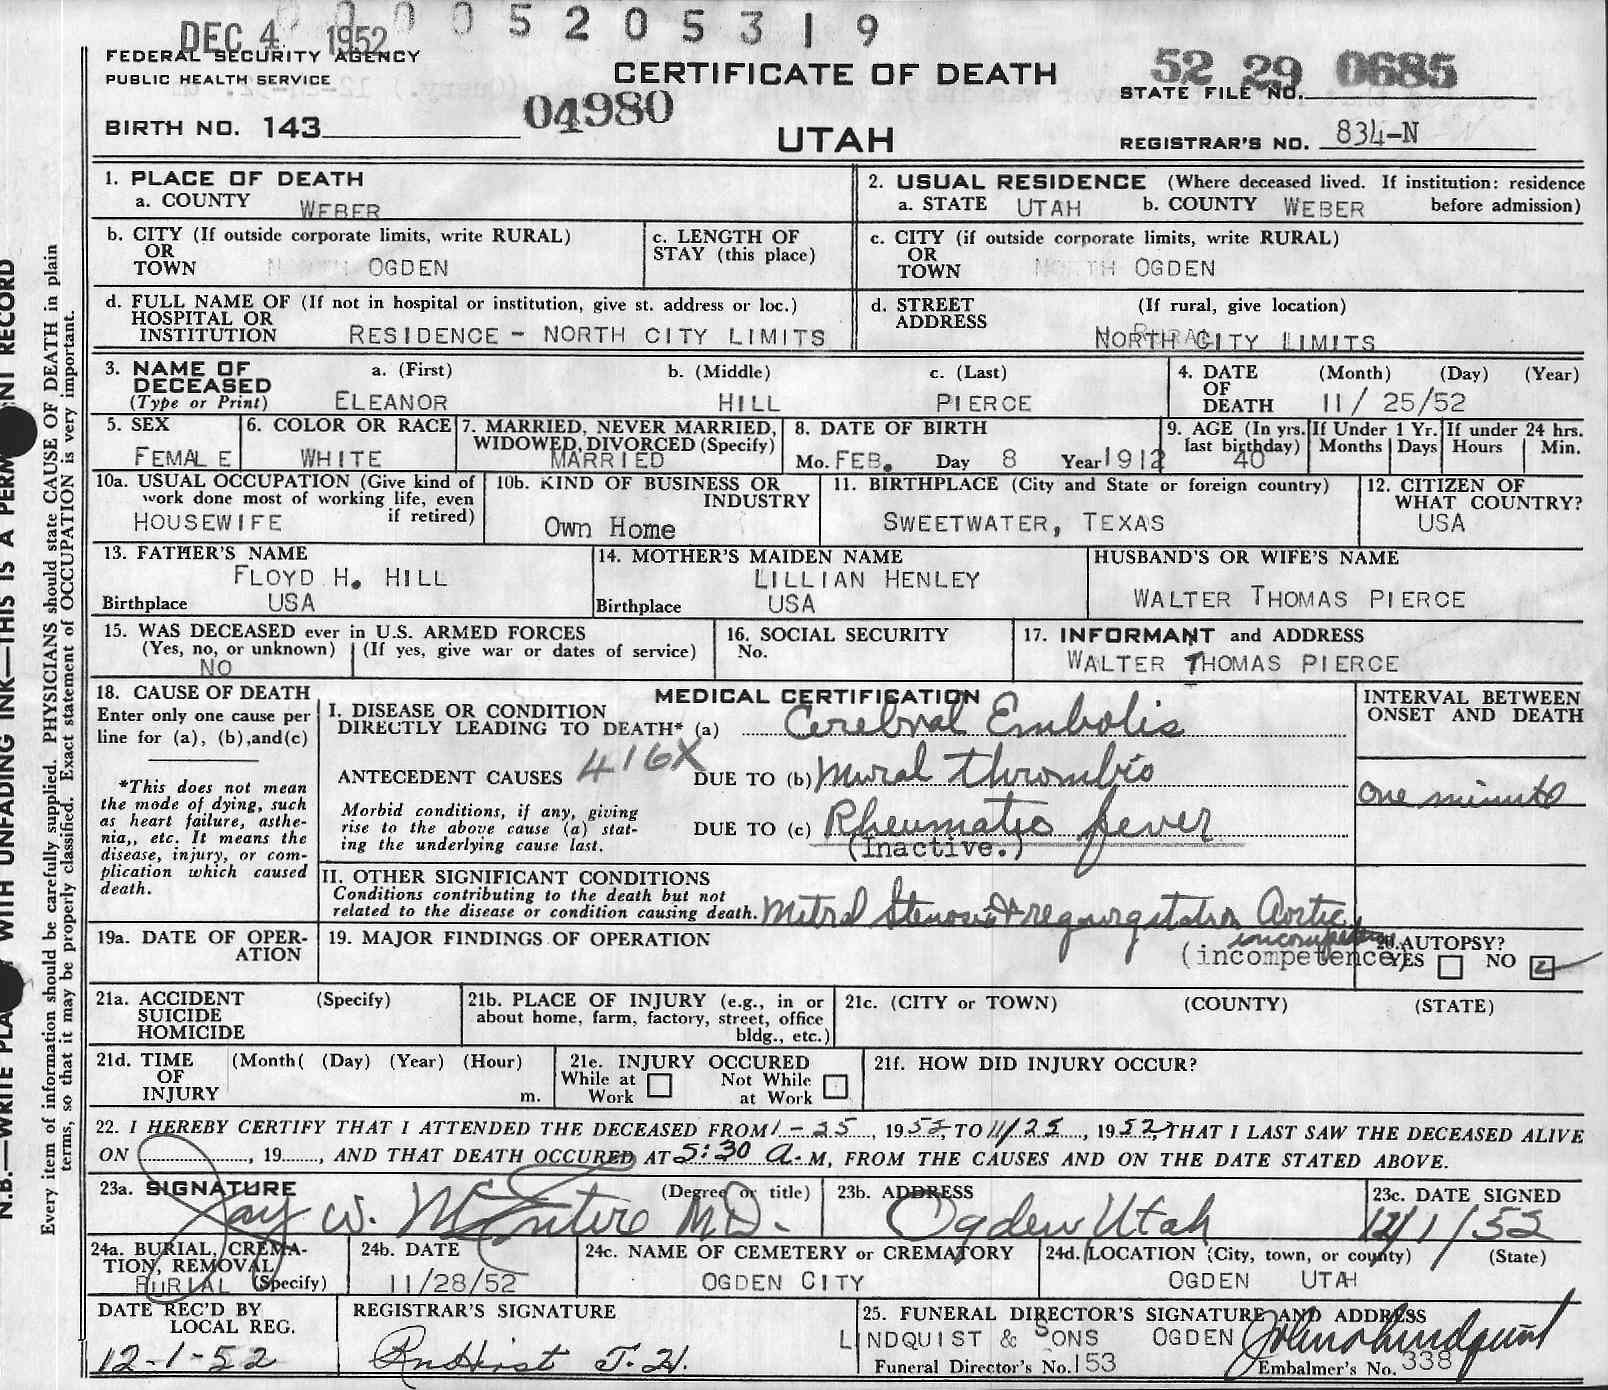 00005205319
DEC 4 1952
FEDERAL SECURITY AGENCY
PUBLIC HEALTH SERVICE
CERTIFICATE OF DEATH
52 29 0685
STATE FILE NO.
BIRTH NO. 143
04980
UTAH
REGISTRAR'S NO. 834-N
1. PLACE OF DEATH
a. COUNTY WEBER
2. USUAL RESIDENCE (Where deceased lived. If institution: residence before admission)
a. STATE UTAH b. COUNTY WEBER
b. CITY (If outside corporate limits, write RURAL)
OR
TOWN NORTH OGDEN
c. LENGTH OF
STAY (this place)
c. CITY (if outside corporate limits, write RURAL)
OR
TOWN NORTH OGDEN
d. FULL NAME OF (If not in hospital or institution, give st. address or loc.)
HOSPITAL OR
INSTITUTION RESIDENCE - NORTH CITY LIMITS
d. STREET (If rural, give location)
ADDRESS
RURAL
NORTH CITY LIMITS
3. NAME OF
DECEASED
(Type or Print)
a. (First) b. (Middle) c. (Last)
ELEANOR HILL PIERCE
4. DATE (Month) (Day) (Year)
OF
DEATH 11/ 25/52
5. SEX
FEMALE
6. COLOR OR RACE
WHITE
7. MARRIED, NEVER MARRIED,
WIDOWED, DIVORCED (Specify)
MARRIED
8. DATE OF BIRTH
Mo. FEB. Day 8 Year 1912
9. AGE (In yrs.
last birthday)
40
If Under 1 Yr.
Months Days
If under 24 hrs.
Hours Min.
10a. USUAL OCCUPATION (Give kind of
work done most of working life, even
if retired)
HOUSEWIFE
10b. KIND OF BUSINESS OR
INDUSTRY
Own Home
11. BIRTHPLACE (City and State or foreign country)
SWEETWATER, TEXAS
12. CITIZEN OF
WHAT COUNTRY?
USA
13. FATHER'S NAME
FLOYD H. HILL
Birthplace USA
14. MOTHER'S MAIDEN NAME
LILLIAN HENLEY
Birthplace USA
HUSBAND'S OR WIFE'S NAME
WALTER THOMAS PIERCE
15. WAS DECEASED ever in U.S. ARMED FORCES
(Yes, no, or unknown) (If yes, give war or dates of service)
NO
16. SOCIAL SECURITY
No.
17. INFORMANT and ADDRESS
WALTER THOMAS PIERCE
18. CAUSE OF DEATH
Enter only one cause per
line for (a), (b),and(c)
*This does not mean
the mode of dying, such
as heart failure, asthe-
nia,, etc. It means the
disease, injury, or com-
plication which caused
death.
MEDICAL CERTIFICATION
I. DISEASE OR CONDITION
DIRECTLY LEADING TO DEATH* (a) Cerebral Embolis
416X
ANTECEDENT CAUSES DUE TO (b) Mural thrombis
Morbid conditions, if any, giving
rise to the above cause (a) stat-
ing the underlying cause last.
DUE TO (c) Rheumatic fever
(Inactive.)
INTERVAL BETWEEN
ONSET AND DEATH
One minute
II. OTHER SIGNIFICANT CONDITIONS
Conditions contributing to the death but not
related to the disease or condition causing death. Mitral Stenosis & regurgitation Aortic
incompetence
(incompetence)
19a. DATE OF OPER-
ATION
19. MAJOR FINDINGS OF OPERATION
20. AUTOPSY?
YES NO
21a. ACCIDENT (Specify)
SUICIDE
HOMICIDE
21b. PLACE OF INJURY (e.g., in or
about home, farm, factory, street, office
bldg., etc.)
21c. (CITY or TOWN) (COUNTY) (STATE)
21d. TIME (Month( (Day) (Year) (Hour)
OF
INJURY m.
21e. INJURY OCCURED
While at Work Not While at Work
21f. HOW DID INJURY OCCUR?
22. I HEREBY CERTIFY THAT I ATTENDED THE DECEASED FROM 1-25, 1952, TO 11/25, 1952, THAT I LAST SAW THE DECEASED ALIVE
ON , 19 , AND THAT DEATH OCCURED AT 5:30 a. M, FROM THE CAUSES AND ON THE DATE STATED ABOVE.
23a. SIGNATURE (Degree or title)
Jay W. McEntire M.D.
23b. ADDRESS
Ogden Utah
23c. DATE SIGNED
12/1/52
24a. BURIAL, CREMA-
TION, REMOVAL
BURIAL (Specify)
24b. DATE
11/28/52
24c. NAME OF CEMETERY or CREMATORY
OGDEN CITY
24d. LOCATION (City, town, or county) (State)
OGDEN UTAH
DATE REC'D BY
LOCAL REG.
12-1-52
REGISTRAR'S SIGNATURE
25. FUNERAL DIRECTOR'S SIGNATURE AND ADDRESS
LINDQUIST & SONS OGDEN John Lindquist
Funeral Director's No. 153 Embalmer's No. 338
Every item of information should be carefully supplied. PHYSICIANS should state CAUSE OF DEATH in plain
terms, so that it may be properly classified. Exact statement of OCCUPATION is very important.